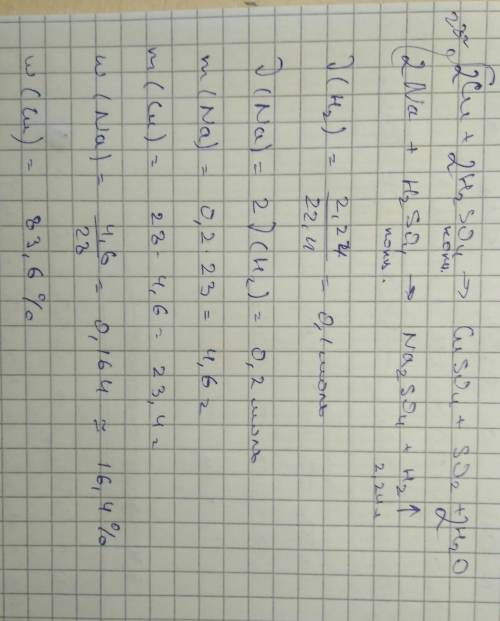 28г 2Cu + 2H₂SO₄ конц. → CuSO₄ + SO₂ + 2H₂O
2Na + H₂SO₄ конц. → Na₂SO₄ + H₂↑ 2,24л
ν(H₂) = 2,24/22,4 = 0,1 моль
ν(Na) = 2ν(H₂) = 0,2 моль
m(Na) = 0,2 · 23 = 4,6г
m(Cu) = 28 - 4,6 = 23,4г
w(Na) = 4,6/28 = 0,164 ≈ 16,4%
w(Cu) = 83,6%